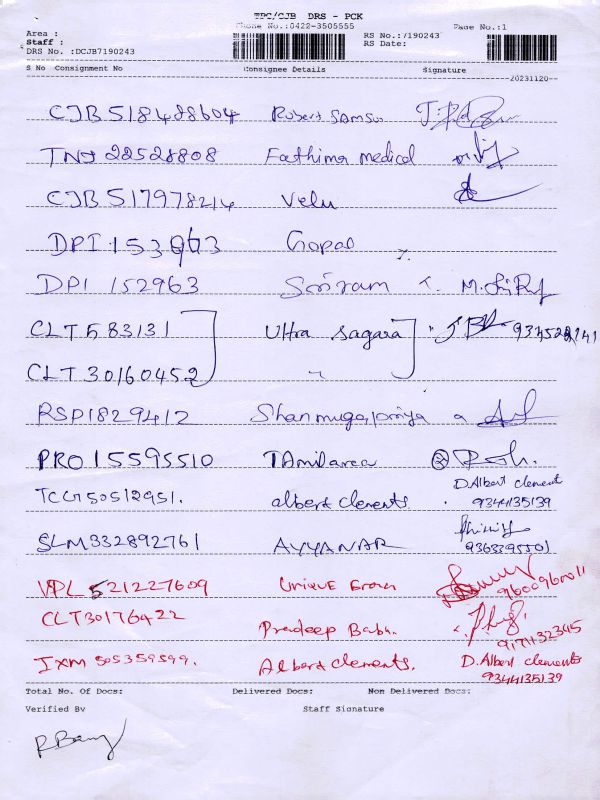 TPC/CJB DRS - PCK
Phone No.:0422-3505555
Area :
Staff :
DRS No. :DCJB7190243
RS No.:/190243
RS Date:
Page No.:1
S No Consignment No Consignee Details Signature
20231120
CJB 518488604 Robert Samso
TNJ 28528808 Fathima medical
CJB 517978214 Velu
DPI 153963 Gopal
DPI 152963 Sriram
CLT 583131 Ultra Sagara
CLT 30160452 "
RSP1829412 Shanmugapriya
PRO 15595510 TAmilarea
TCG 50512951. albert clements. D. Albert clement 9344135139
SLM332892761 AYYANAR 9363395501
VPL 521227609 Unique 9600960011
CLT30176422 Pradeep Babu. 9171132345
IXM 505359599. Albert clements. D. Albert clements 9344135139
Total No. Of Docs: Delivered Docs: Non Delivered Docs:
Verified By Staff Signature